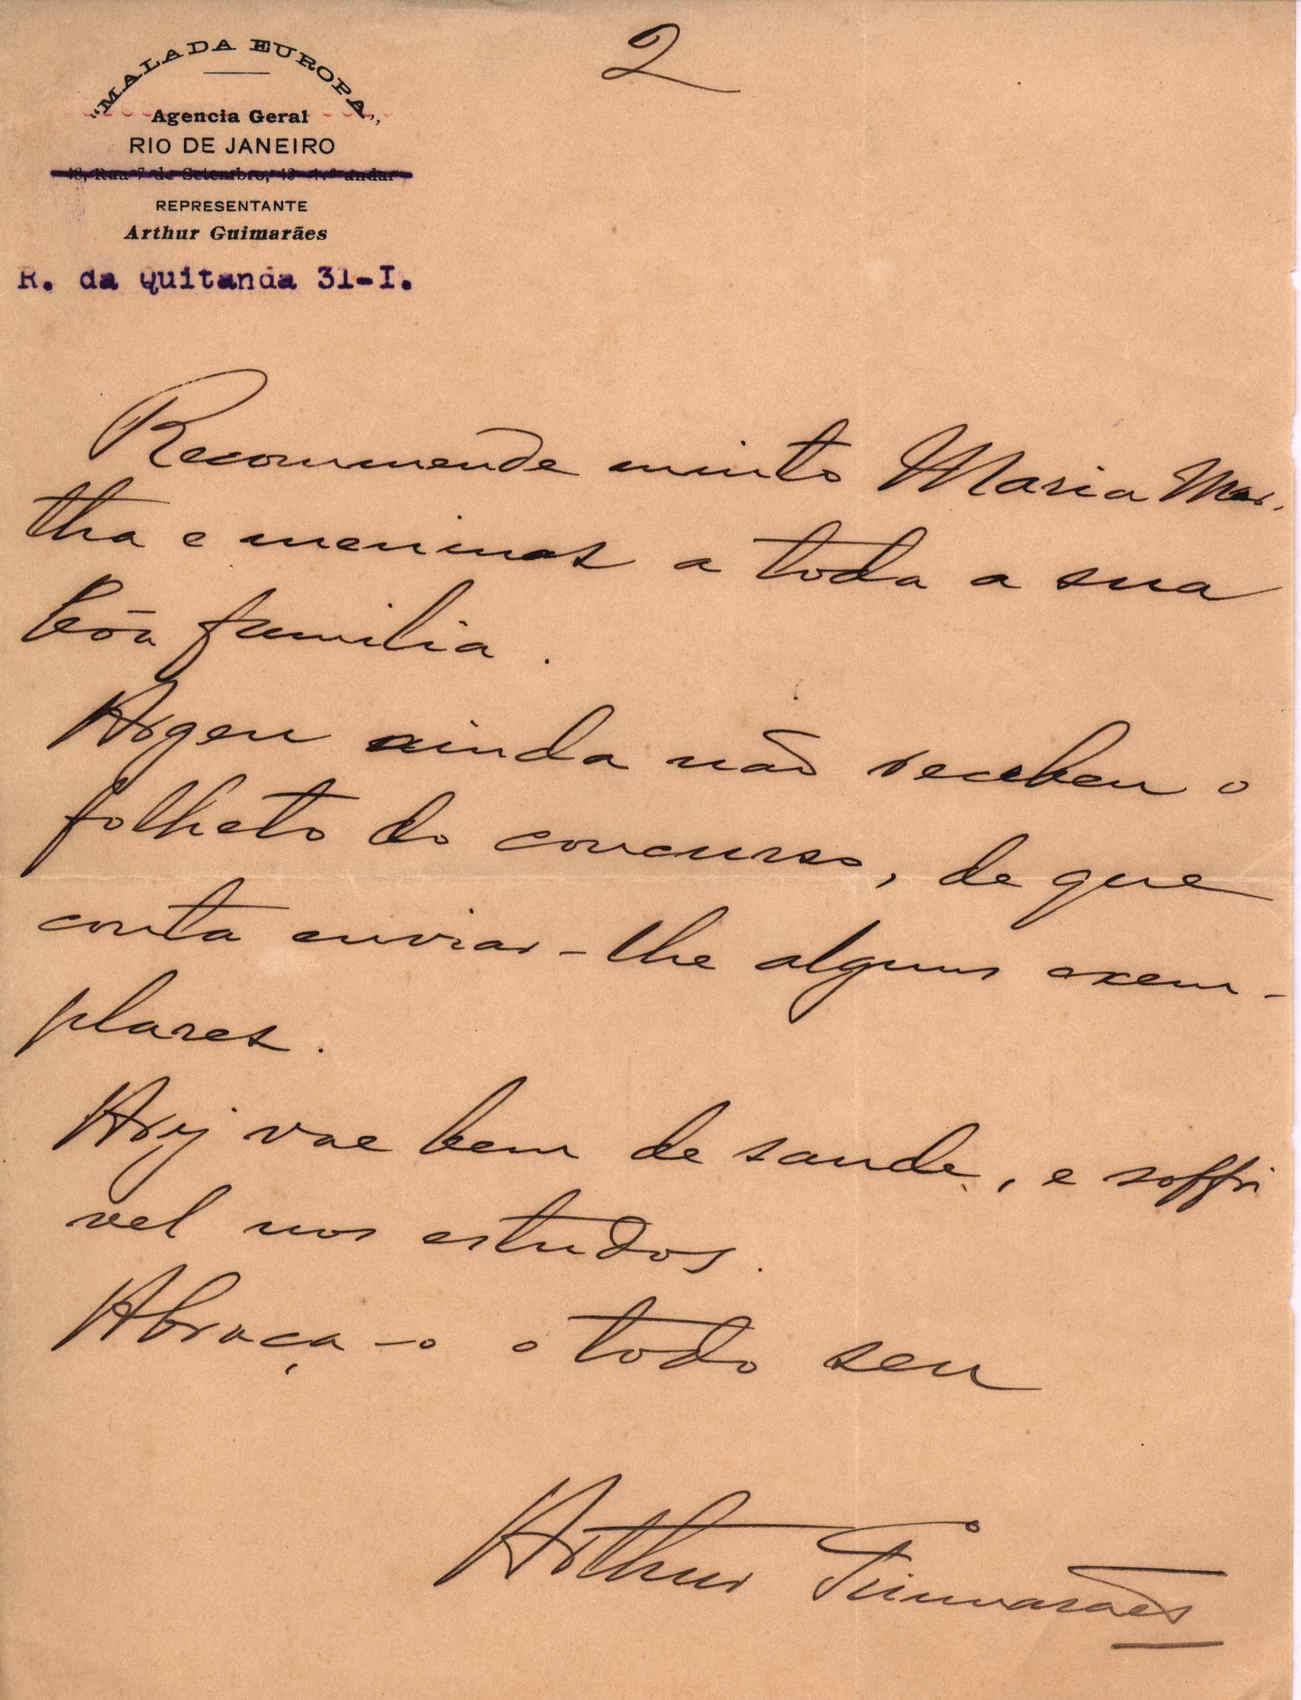 2
"MALA DA EUROPA"
Agencia Geral
RIO DE JANEIRO
48, Rua 7 de Setembro, 48-1.º andar
REPRESENTANTE
Arthur Guimarães
R. da Quitanda 31-I.
Recommende muito Maria Mar-
tha e meninas a toda a sua
bôa familia.
Argeu ainda não recebeu o
folheto do concurso, de que
conta enviar-lhe alguns exem-
plares.
Ary vae bem de saude, e soffri
vel nos estudos.
Abraça-o o todo seu
Arthur Guimarães